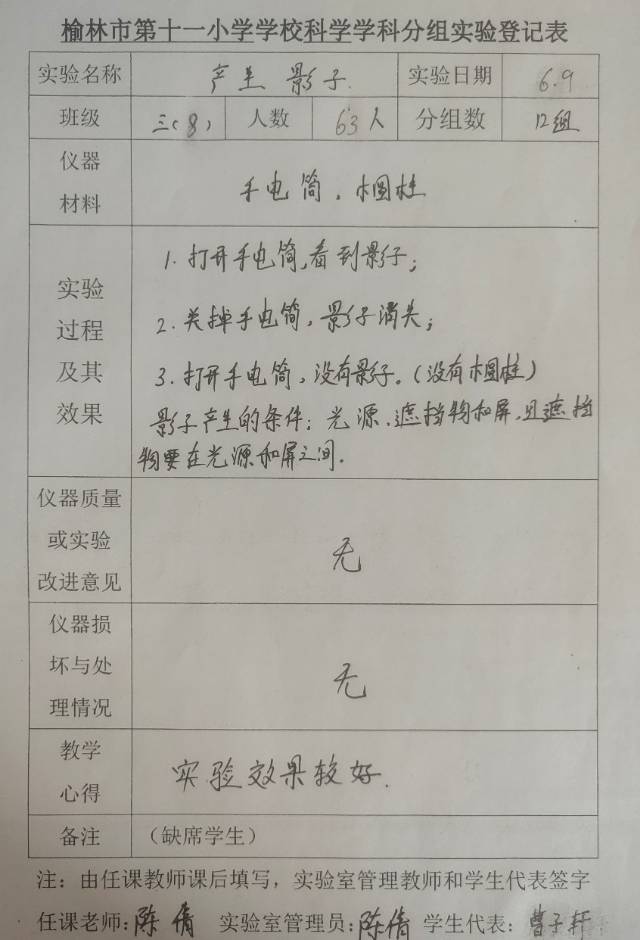 榆林市第十一小学学校科学学科分组实验登记表
实验名称 产生影子. 实验日期 6.9
班级 三(8) 人数 63人 分组数 12组
仪器
材料
手电筒,木圆柱
实验
过程
及其
效果
1.打开手电筒,看到影子;
2.关掉手电筒,影子消失;
3.打开手电筒,没有影子。(没有木圆柱)
影子产生的条件:光源、遮挡物和屏,且遮挡
物要在光源和屏之间.
仪器质量
或实验
改进意见
无
仪器损
坏与处
理情况
无
教学
心得
实验效果较好.
备注 (缺席学生)
注:由任课教师课后填写,实验室管理教师和学生代表签字
任课老师:陈倩 实验室管理员:陈倩 学生代表:曹子轩